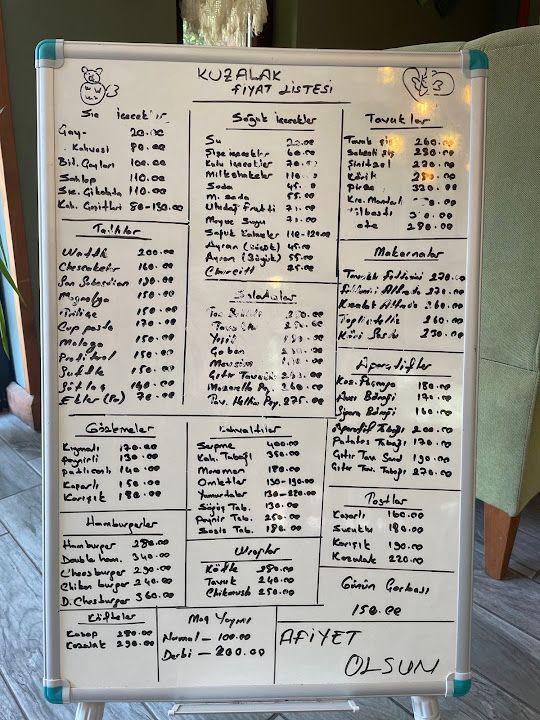 KUZALAK
FİYAT LİSTESİ
Sıc İçecekler
Çay 20.00
Kahvesi 80.00
Bit. Çayları 100.00
Sahlep 110.00
Sıc. Çikolata 110.00
Kah. Çeşitleri 80-130.00
Tatlılar
Waffle 200.00
Cheesecake 160.00
San Sebastian 190.00
Magnolya 150.00
Trileçe 150.00
Cup pasta 170.00
Malaga 150.00
Profiterol 150.00
Sufle 150.00
Sütlaç 140.00
Ekler (Po) 70.00
Gözlemeler
Kıymalı 170.00
Peynirli 130.00
Patlıcanlı 140.00
Kaşarlı 150.00
Karışık 180.00
Hamburgerler
Hamburger 280.00
Double ham. 340.00
Cheesburger 290.00
Chiken burger 240.00
D. Chesburger 360.00
Köfteler
Kasap 280.00
Kozalak 290.00
Soğuk İçecekler
Su 20.00
Şişe içecekler 60.00
Kutu içecekler 70.00
Milkshakeler 110.00
Soda 45.00
M. soda 55.00
Uludağ Frutti 71.00
Meyve Suyu 71.00
Soğuk Kahveler 110-120.00
Ayran (Küçük) 45.00
Ayran (Büyük) 55.00
Churcill 85.00
Salatalar
Ton Balıklı
Tavuklu
Yeşil
Çoban
Mevsim
Çıtır Tavuk
Mozarella Pey. 260.00
Tav. Hellim Pey. 275.00
Kahvaltılar
Serpme 400.00
Kah. Tabağı 350.00
Menemen 180.00
Omletler 130-190.00
Yumurtalar 130-220.00
Sigüş Tab. 130.00
Peynir Tab. 250.00
Sosis Tab. 180.00
Wraplar
Köfte 280.00
Tavuk 240.00
Maç Yayını
Normal - 100.00
Derbi - 200.00
Tavuklar
Tavuk şiş 260.00
Soslu şiş 280.00
Şinitzel 270.00
Körili 280.00
Pirzo 320.00
Kre. Mantarlı
ote 290.00
Makarnalar
Tavuklu Fettucini 270.00
Fettucini Alfredo 270.00
Kozalak Alfredo 260.00
260.00
Köri Soslu 230.00
Aperatifler
Kos. Paçanga 180.00
Avcı Böreği 170.00
Sigara Böreği 160.00
Aperatif Tabağı 200.00
Patates Tabağı 170.00
Çıtır Tav. Sand 190.00
Çıtır Tav. Tabağı 270.00
Tostlar
Kaşarlı 160.00
Sucuklu 180.00
Karışık 190.00
Kozalak 220.00
Günün Çorbası
150.00
AFİYET
OLSUN